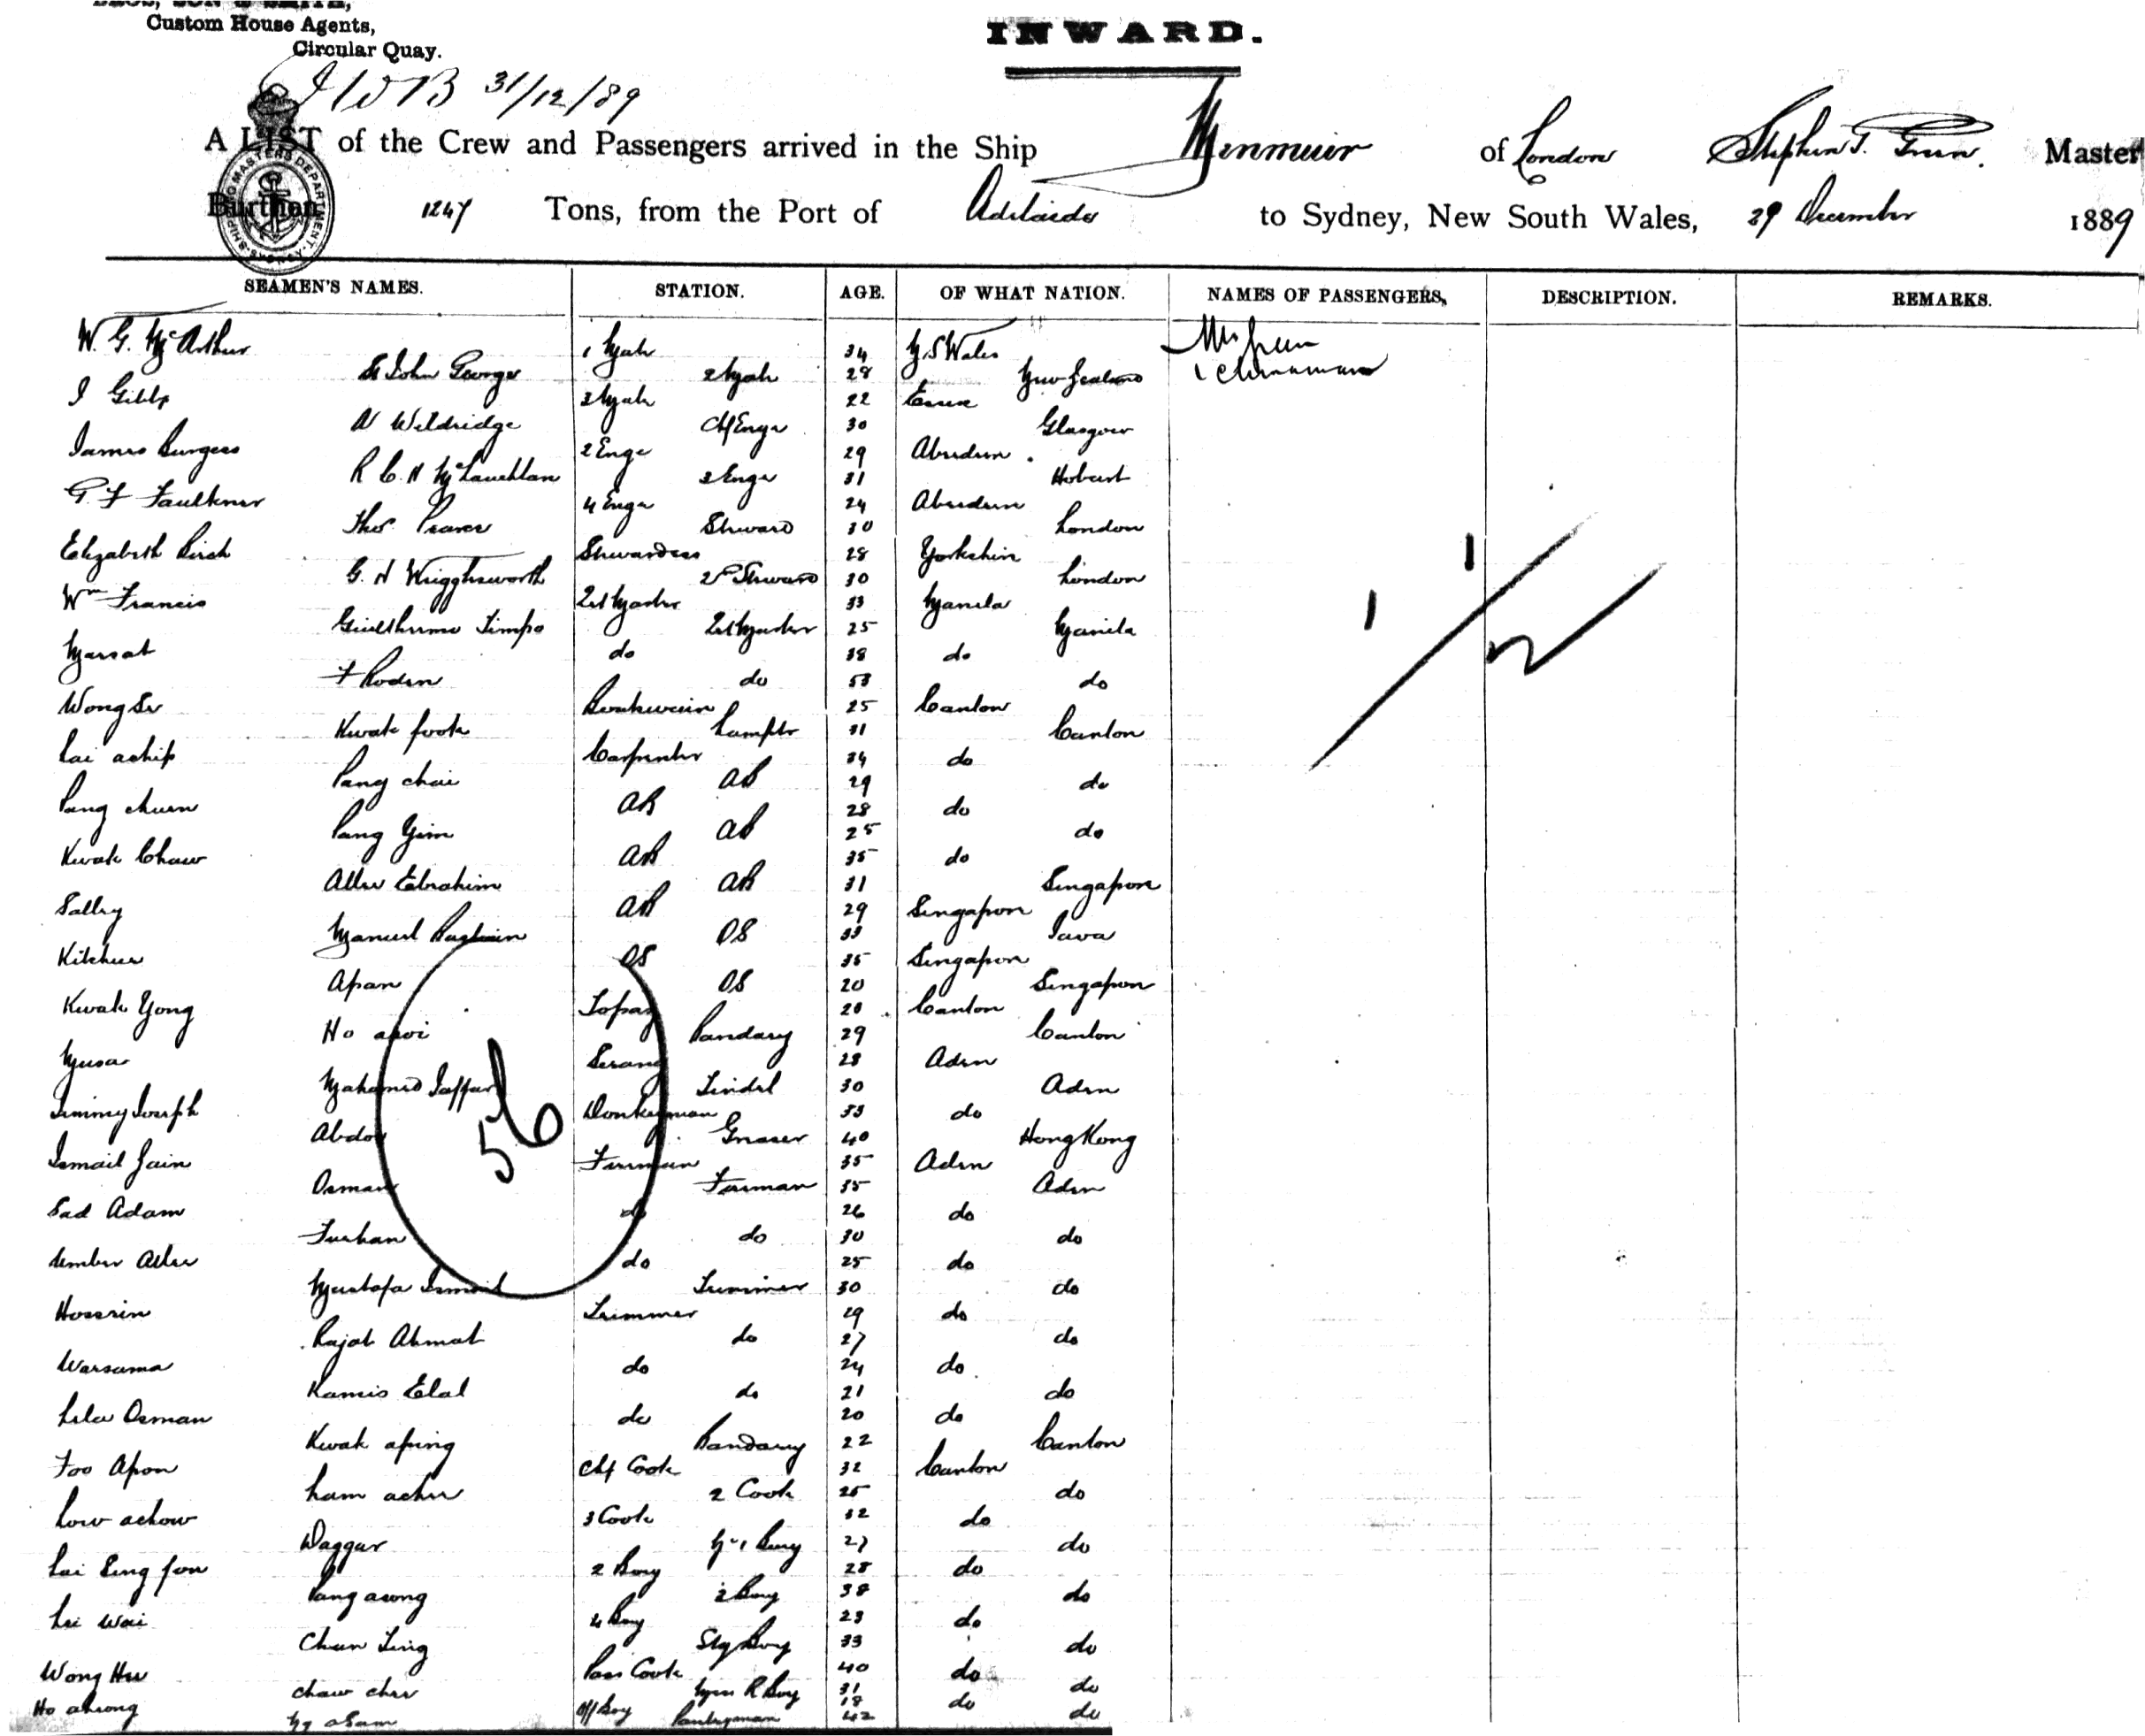 Custom House Agents,
Circular Quay.
INWARD.
31/12/89
A LIST of the Crew and Passengers arrived in the Ship Menmuir of London Stephen T. Green. Master
Burthen 1247 Tons, from the Port of Adelaide to Sydney, New South Wales, 29 December 1889
SHIPPING MASTERS DEPARTMENT SYDNEY
SEAMEN'S NAMES. STATION. AGE. OF WHAT NATION. NAMES OF PASSENGERS, DESCRIPTION. REMARKS.
W. G. McArthur 1 Mate 34 N. S Wales Mrs Green
St John George 2 Mate 28 New Zealand 1 Chinaman
I Gibbs 3 Mate 22 Essex
N Weldridge Chf Engr 30 Glasgow
James Burgess 2 Engr 29 Aberdeen
R C H McLauchlan 3 Engr 31 Hobart
G. F Faulkner 4 Engr 24 Aberdeen
Thos Pearce Steward 30 London
Elizabeth Birch Stewardess 28 Yorkshire
G. H Wrigglesworth 2nd Steward 30 London
Wm Francis Qrt Master 33 Manila
Guilthermo Timpo Qrt Master 25 Manila
Marsat do 38 do
F Roden do 53 do
Wong Se 25 Canton
Kwak fook Lamptr 31 Canton
Lai achip Carpenter 34 do
Pang chai AB 29 do
Pang chuen AB 28 do
Pang Yim AB 25 do
Kwak Chaw AB 35 do
Allee Ebrahim AB 31 Singapore
Salley AB 29 Singapore
Manuel OS 33 Java
Kitchee OS 35 Singapore
Apan OS 20 Singapore
Kwak Yong Topaz 28 Canton
Ho apoi Bandary 29 Canton
Musa Serang 28 Aden
Mahomed Jaffar Tindel 30 Aden
Jimmy Joseph Donkeyman 33 do
Abdo Greaser 40 Hong Kong
Ismail Jain Fireman 35 Aden
Osman Fireman 35 Aden
Sad Adam do 26 do
Furhan do 30 do
Allee do 25 do
Mustafa Ismail Trimmer 30 do
Hossein Trimmer 29 do
Rajab Ahmat do 27 do
Warsama do 24 do
Kamis Elal do 21 do
Osman do 20 do
Kwak aping Bandary 22 Canton
Foo Apon Chf Cook 32 Canton
Lam achee 2 Cook 25 do
Low achow 3 Cook 32 do
Waggur No 1 Boy 27 do
Lai Sing fou 2 Boy 28 do
Pang asong 3 Boy 38 do
Lei Wai 4 Boy 23 do
Chun Ling Stg Boy 33 do
Wong Hee Pass Cook 40 do
Chaw chee Mess R Boy 31 do
Ho ahsong Off Boy 18 do
Ng asam Pantryman 42 do
56
1
1
2